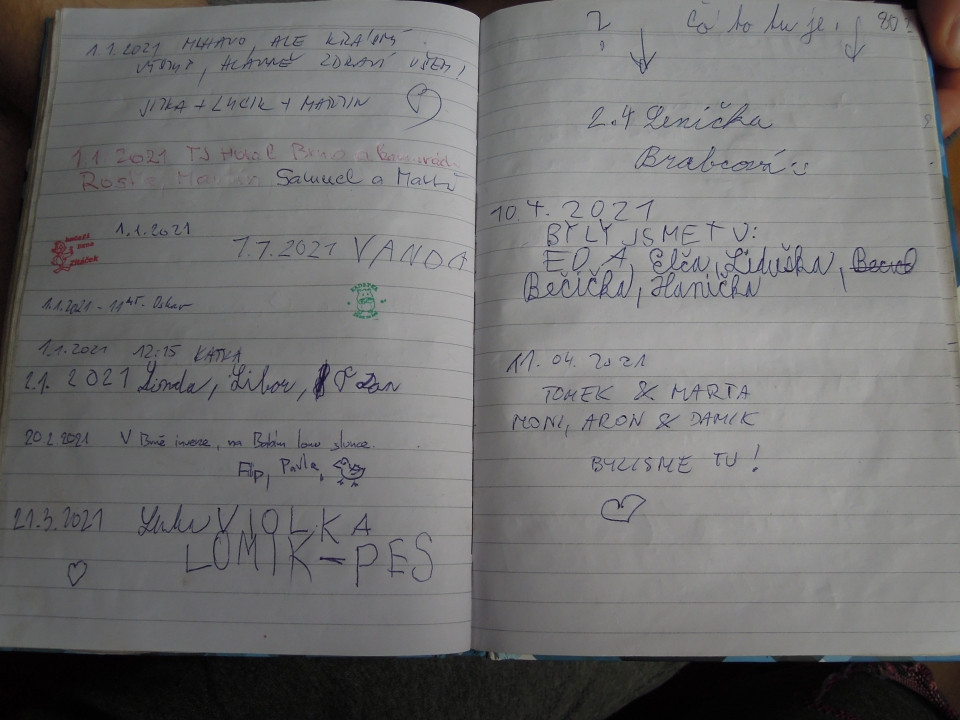 1.1.2021 MLHAVO, ALE KRÁSNÝ
VÝHLED, HLAVNĚ ZDRAVÍ VŠEM!
JITKA + LUCIK + MARTIN
1.1. 2021 TJ Brno a
Samuel a
1.1.2021
1.1.2021 VANDA
1.1.2021 - Oskar
1.1.2021 12:15 KATKA
2.1. 2021 Linda, Libor, Dan
20.2.2021 V Brně inverze, na Babím lomu slunce.
Filip, Pavla,
21.3.2021 VIOLKA
LOMIK-PES
?
Co to tu je.
2.4 Lenička
Brabcová
10.4.2021
BYLY JSME TU:
EDA, Elča, Liduška,
Bečička, Hanička
11.04.2021
TOMEK & MARTA
MONI, ARON & DAMIK
BYLI SME TU!